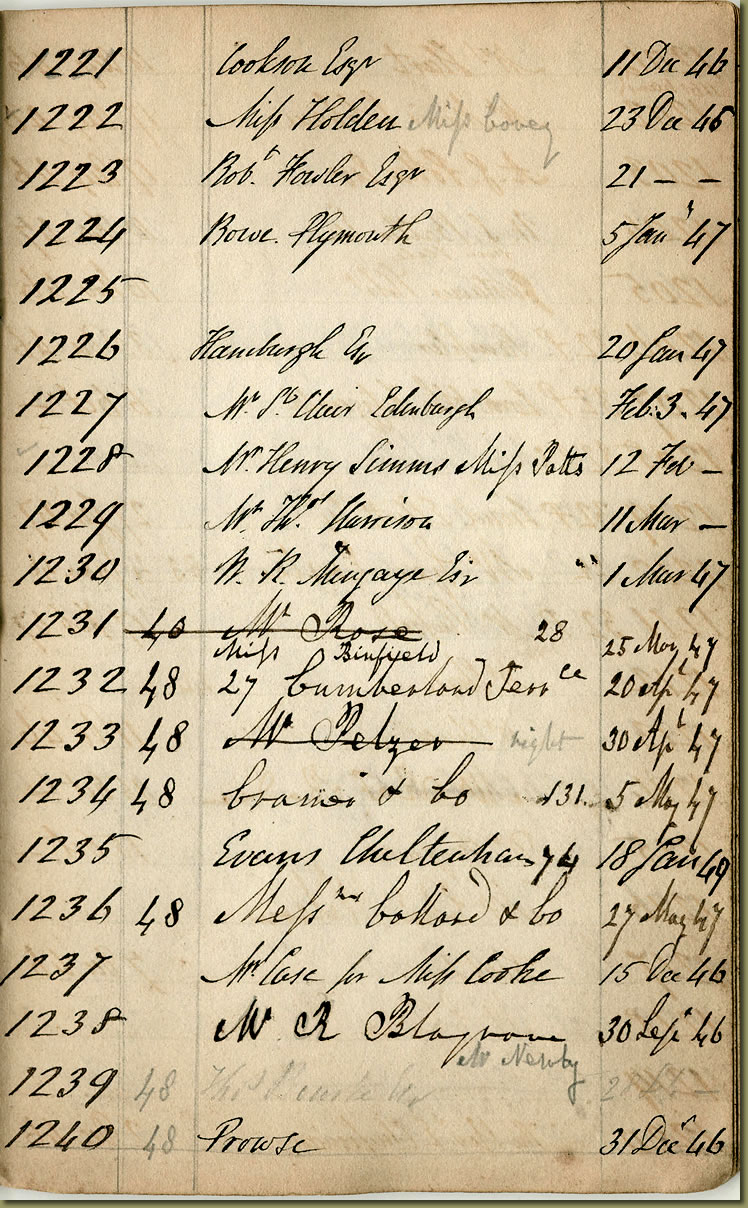 1221 Cookson Esqr 11 Dec 46
1222 Miss Holden Miss Covey 23 Dec 46
1223 Robt. Fowler Esqr 21 – –
1224 Rowe. Plymouth 5 Jany 47
1225
1226 Hamburgh Er 20 Jan 47
1227 Mr. St. Clair Edenburgh Feb. 3. 47
1228 Mr. Henry Simms Miss Potts 12 Feb –
1229 Mr Thos Harrison 11 Mar –
1230 W. R. Esr 1 Mar 47
1231 40 Mr Rose 28 25 May 47
Miss Binfield
1232 48 27 Cumberland Terrce 20 Apl 47
1233 48 Mr Pelzer right 30 Apl 47
1234 48 Cramer & Co 131. 5 May 47
1235 Evans Cheltenham 74 18 Jan 49
1236 48 Messrs Collard & Co 27 May 47
1237 Mr. Case for Miss Cooke 15 Dec 46
1238 Mr R Blagrove 30 Sept 46
Mr Newby
1239 48 Thos
1240 48 Prowse 31 Dec 46